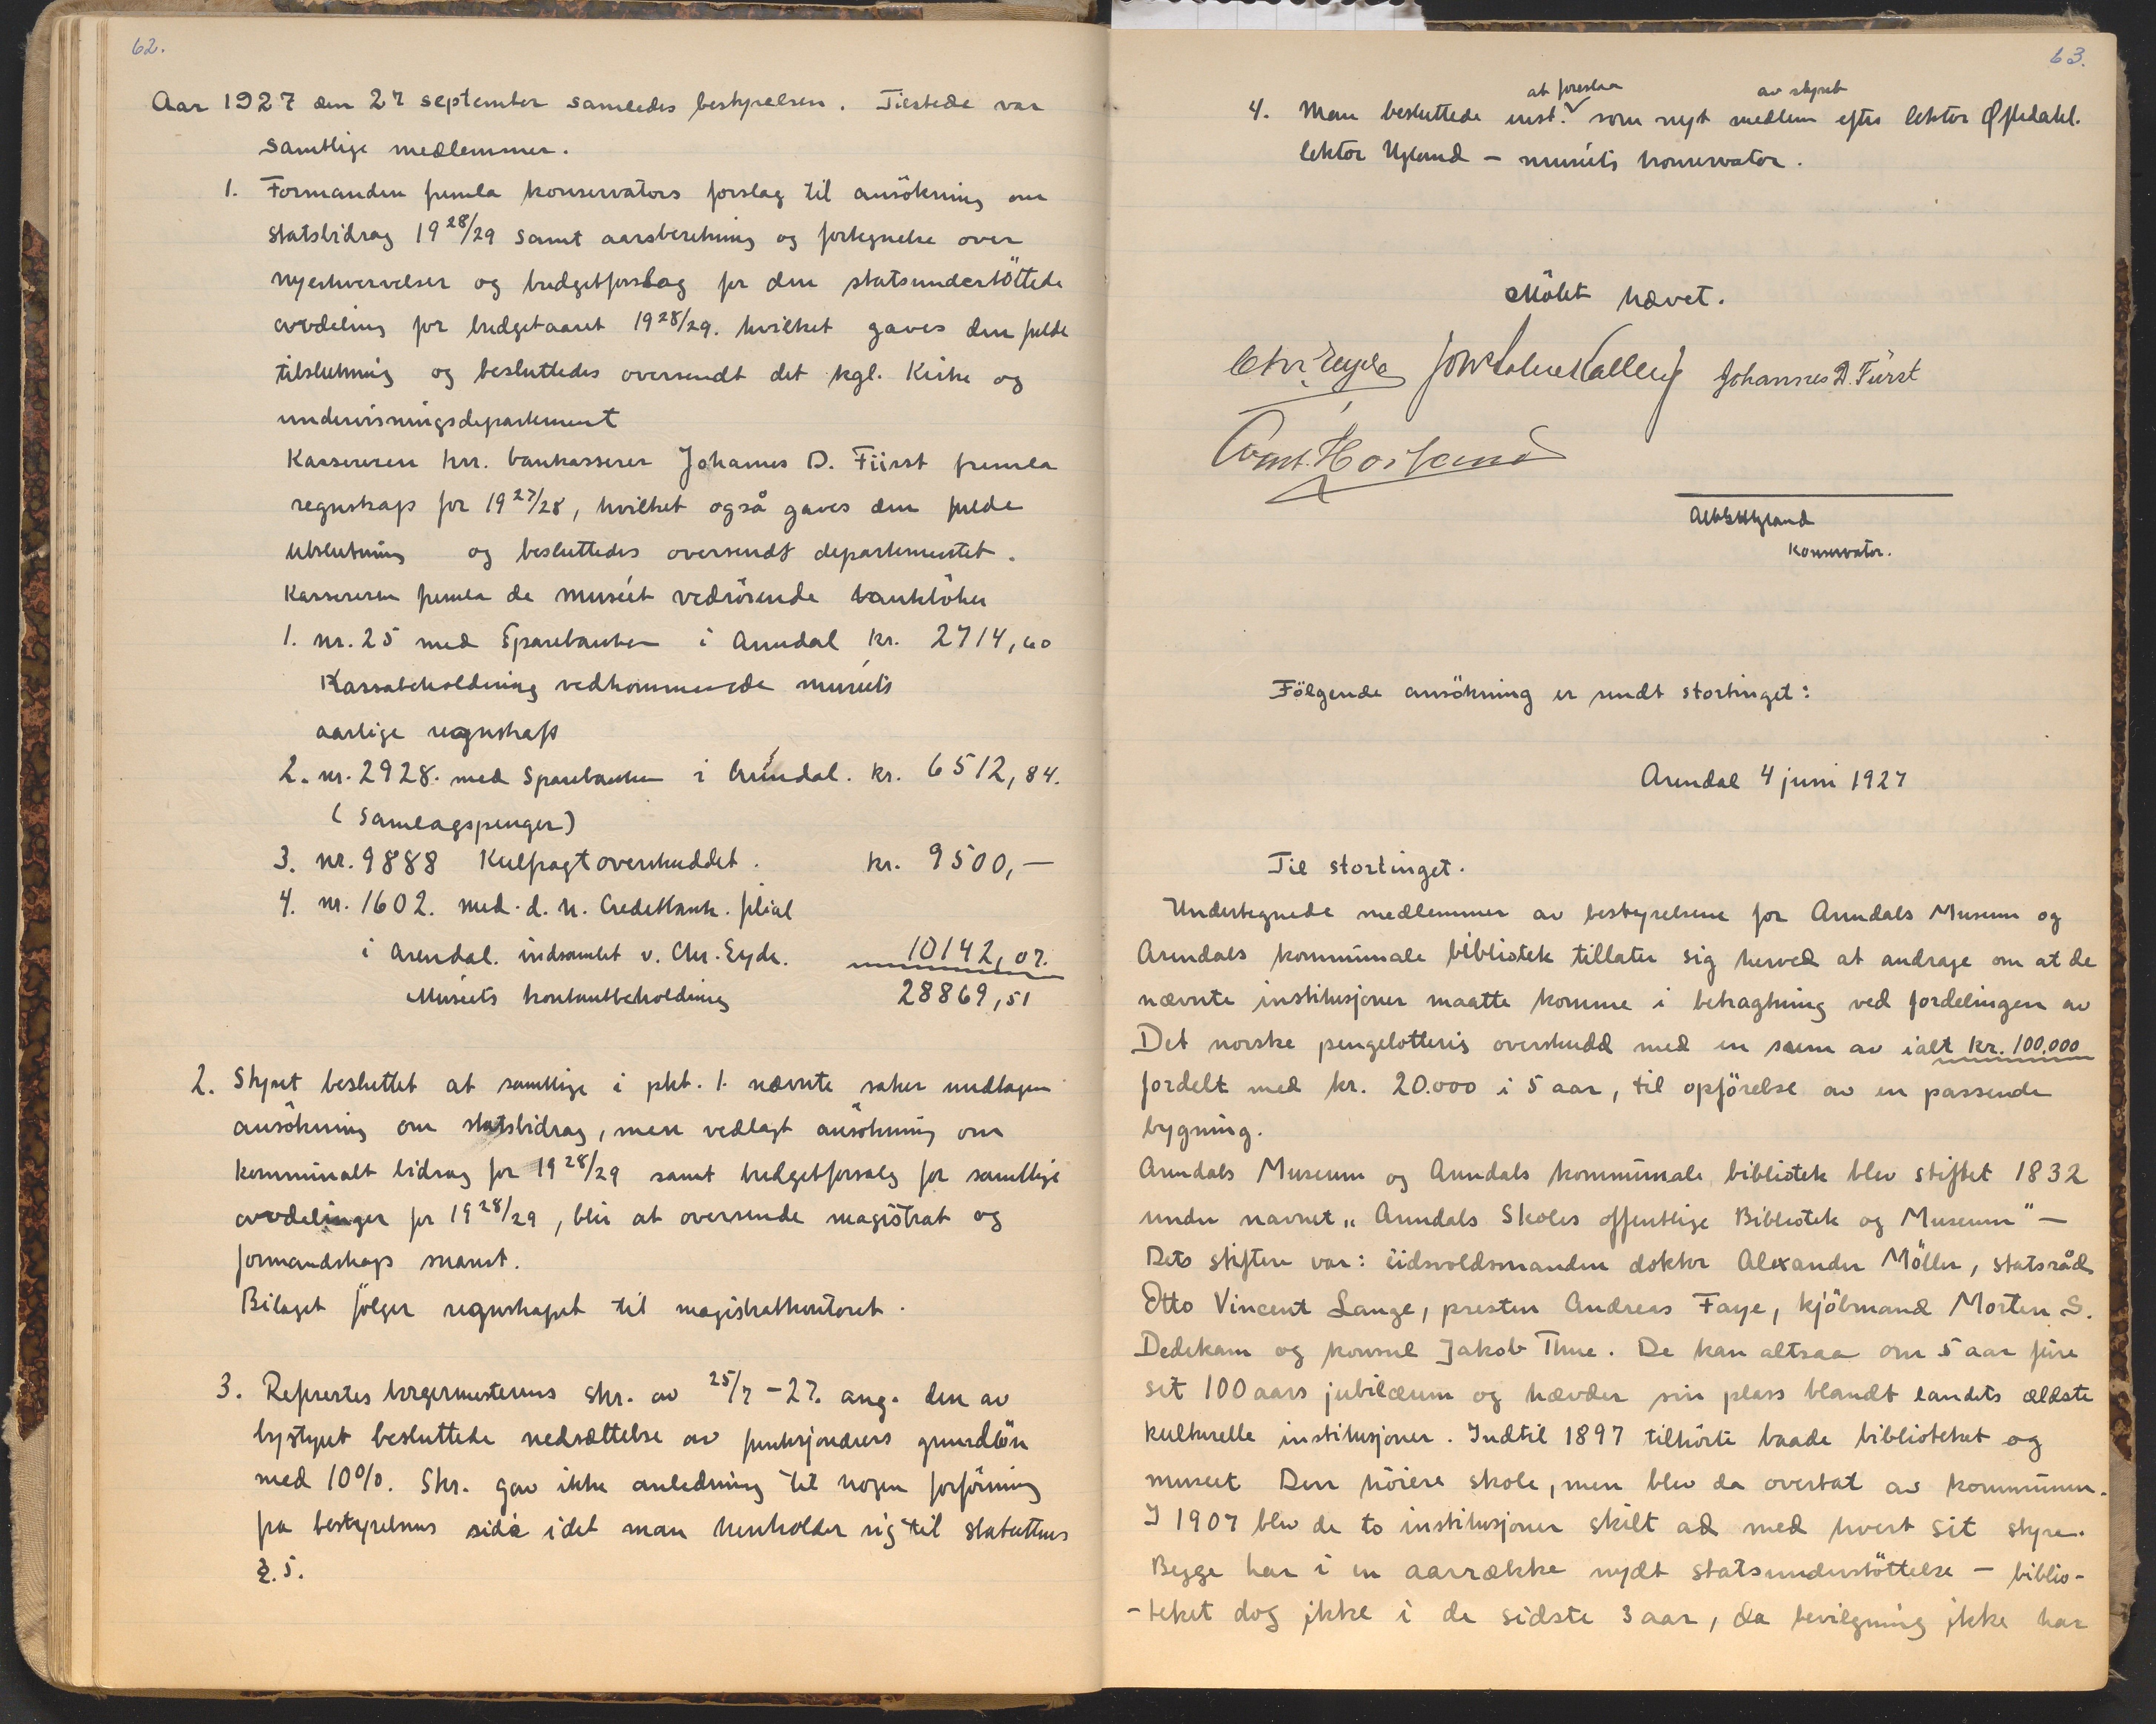 62.
Aar 1927 den 27 september samledes bestyrelsen. Tilstede var
samtlige medlemmer.
1. Formanden fremla konservators forslag til ansökning om
statsbidrag 19 28/29 samt aarsberetning og fortegnelse over
nyerhvervelser og budgetforslag for den statsunderstöttede
avdeling for budgetaaret 19 28/29. hvilket gaves den fulde
tilslutning og besluttedes oversendt det kgl. Kirke og
undervisningsdepartement
Kassereren hrr. bankasserer Johannes D. Fürst fremla
regnskap for 19 27/28, hvilket også gaves den fulde
tilslutning og besluttedes oversendt departementet.
Kassereren fremla de muséet vedrörende bankböker
1. nr. 25 med Sparebanken i Arendal kr. 2714,60
Kassabeholdning vedkommende muséets
aarlige regnskap
2. nr. 2928. med Sparebanken i Arendal. kr. 6512,84.
(Samlagspenger)
3. nr. 9888 Kulfragtoverskuddet. kr. 9500,—
4. nr. 1602. med. d. n. Creditbank. filial
i Arendal. indsamlet v. Chr. Eyde. 10142,07.
Muséets kontantbeholdning 28869,51
2. Styret besluttet at samtlige i pkt. 1. nævnte saker undtagen
ansökning om statsbidrag, men vedlagt ansökning om
kommunalt bidrag for 19 28/29 samt budgetforsalg for samtlige
avdelinger for 19 28/29, blir at oversende magistrat og
formandskap snarest.
Bilaget fölger regnskapet til magistratkontoret.
3. Refertes borgermesterens skr. av 25/7 - 27. ang. den av
bystyret besluttede nedsættelse av funksjonærers grundlön
med 10%. Skr. gav ikke anledning til nogen forföining
fra bestyrelsens side idet man henholder sig til statuttens
§. 5.
63.
at foreslaa av styret
4. Man besluttede inst. som nyt medlem efter lektor Øftedahl.
lektor Ugland - muséets konservator.
Mötet hævet.
Chr. Eyde Johannes D. Fürst
Ugland
Konservator.
Fölgende ansökning er sendt stortinget:
Arendal 4 juni 1927
Til stortinget.
Undertegnede medlemmer av bestyrelsene for Arendals Museum og
Arendals kommunale bibliotek tillater sig herved at andrage om at de
nævnte institusjoner maatte komme i betragtning ved fordelingen av
Det norske pengelotteris overskudd med en sum av ialt kr. 100,000
fordelt med kr. 20.000 i 5 aar, til opförelse av en passende
bygning.
Arendals Museum og Arendals kommunale bibliotek blev stiftet 1832
under navnet „Arendals Skoles offentlige Bibliotek og Museum" —
Dets stiftere var: eidsvoldsmanden doktor Alexander Möller, statsråd
Otto Vincent Lange, presten Andreas Faye, kjöbmand Morten S.
Dedekam og konsul Jakob Thue. De kan altsaa om 5 aar feire
sit 100 aars jubilæum og hævder sin plass blandt landets ældste
kulturelle institusjoner. Indtil 1897 tilhörte baade biblioteket og
museet Den höiere skole, men blev da overtat av kommunen.
I 1907 blev de to institusjoner skilt ad med hvert sit styre.
Begge har i en aarrække nydt statsunderstöttelse - biblio-
-teket dog ikke i de sidste 3 aar, da bevilgning ikke har